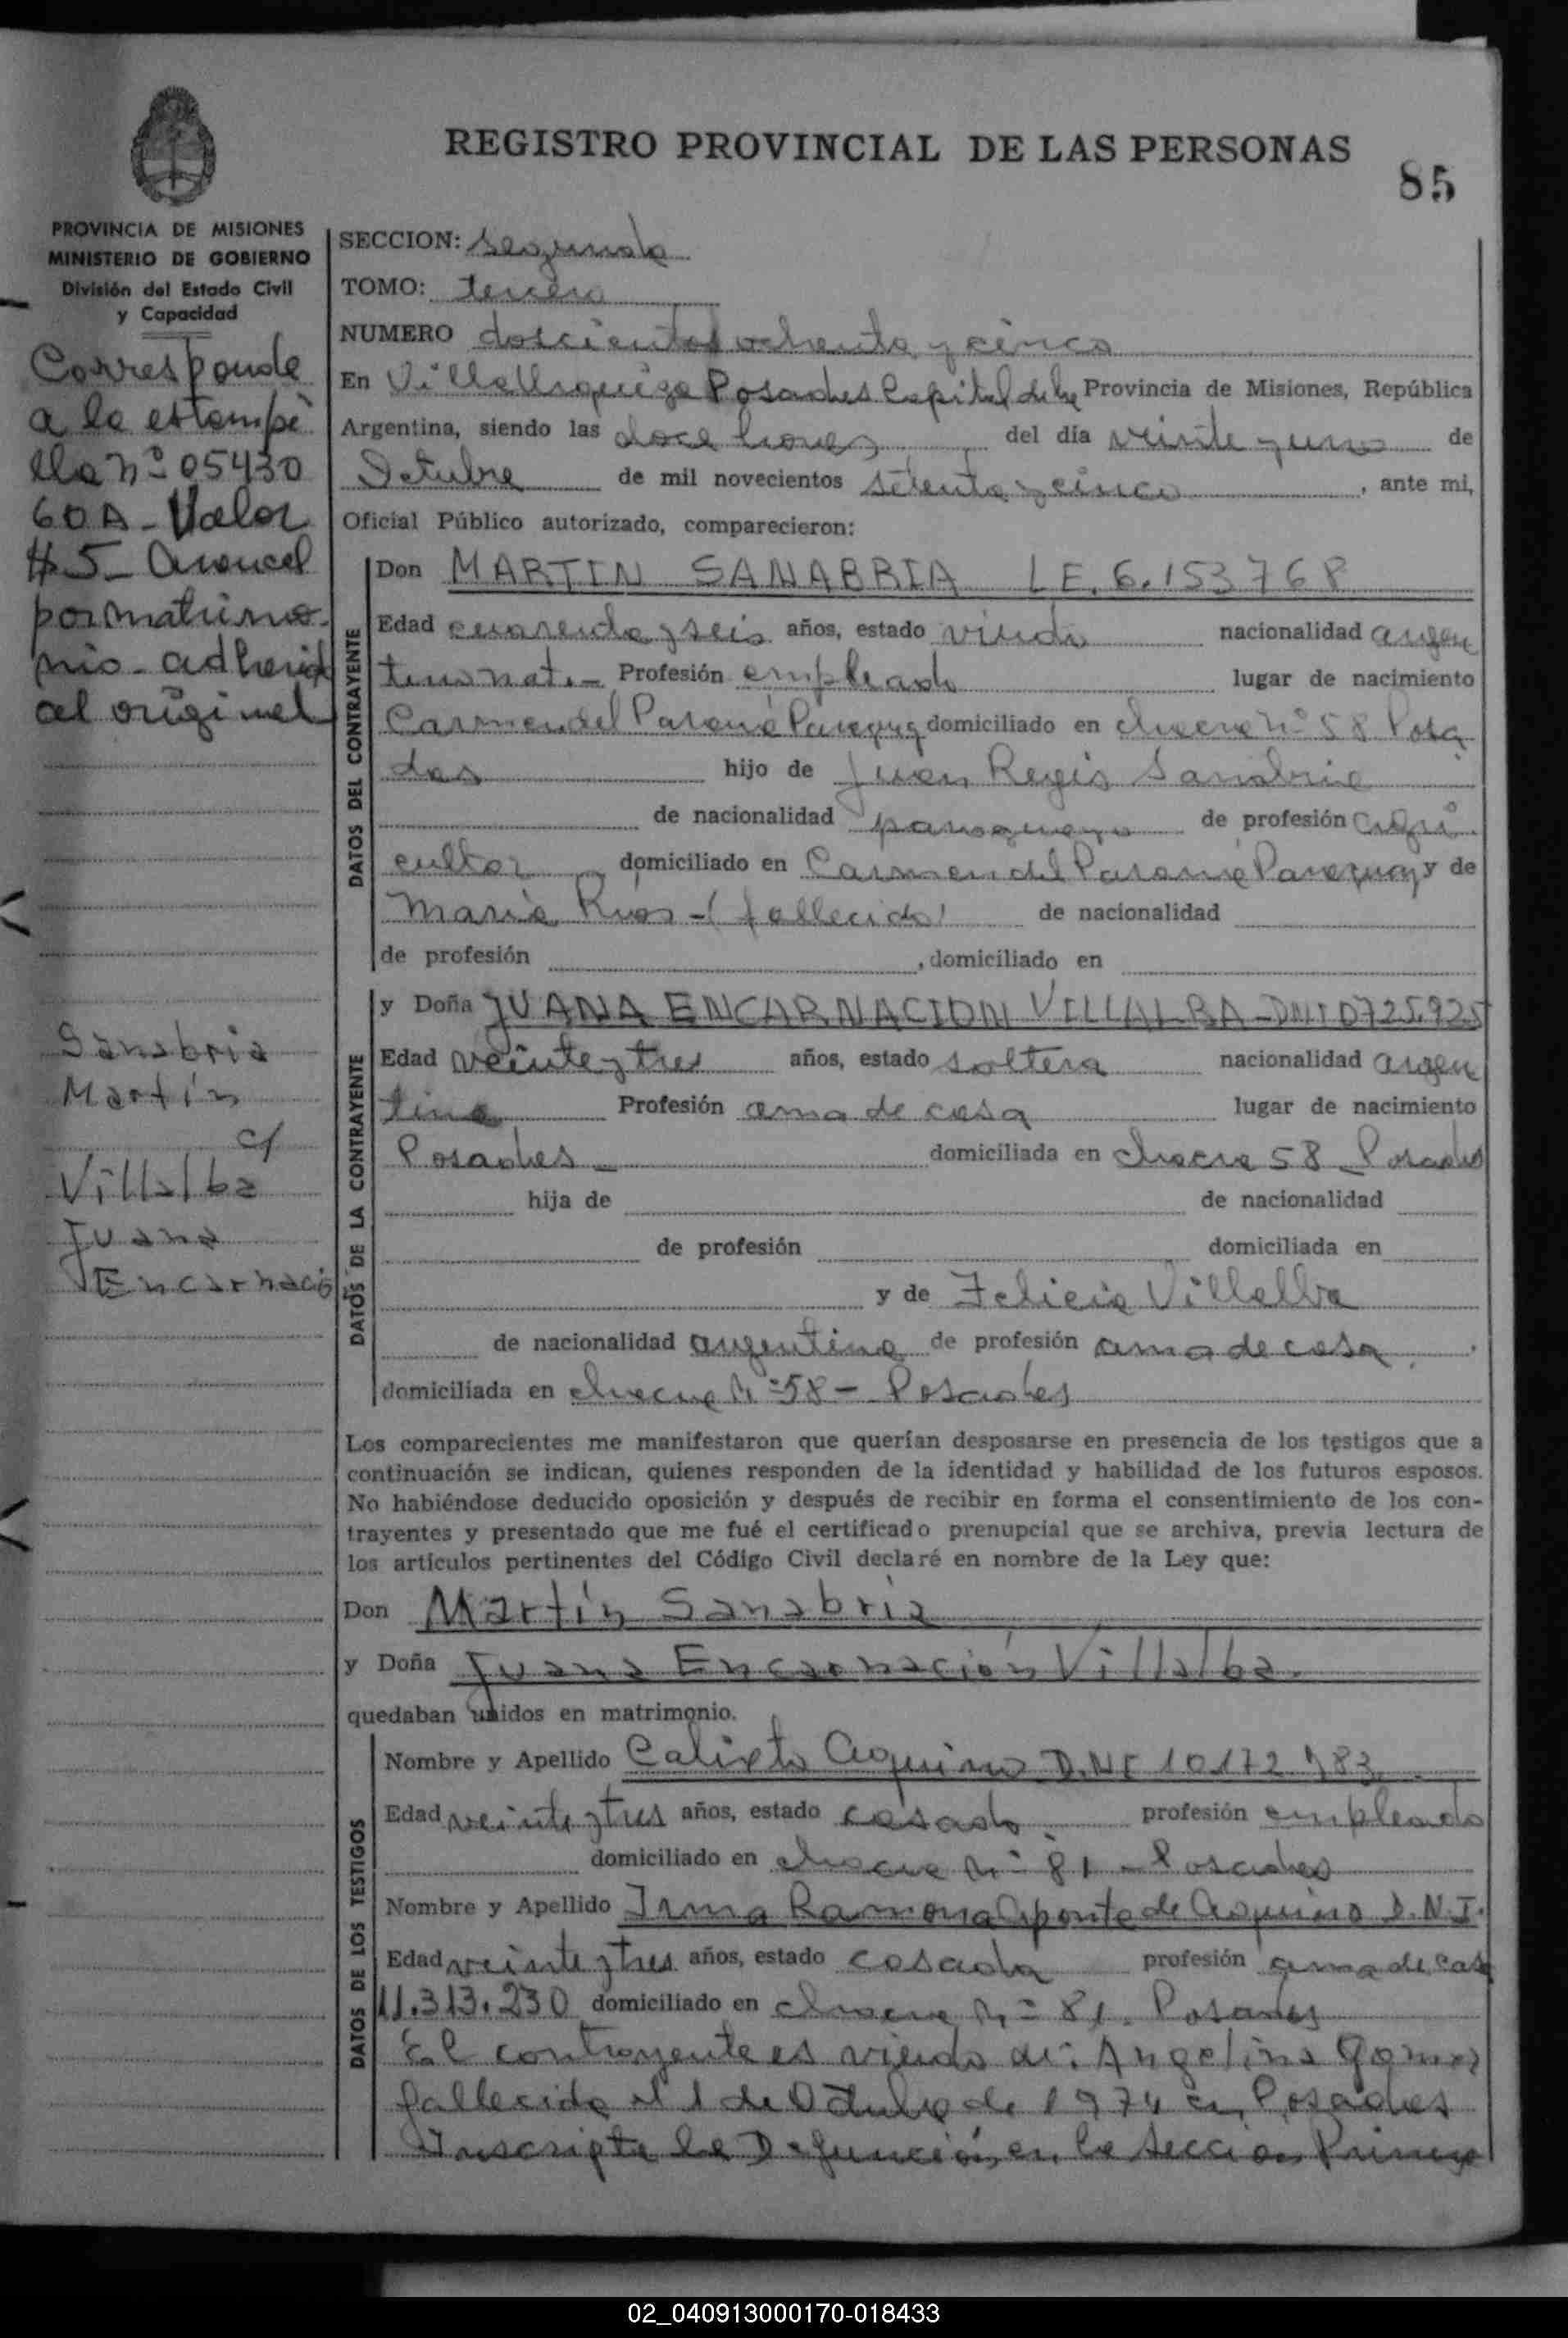 REGISTRO PROVINCIAL DE LAS PERSONAS
85
PROVINCIA DE MISIONES
MINISTERIO DE GOBIERNO
División del Estado Civil
y Capacidad
Corresponde
a la estampi
lla nº 05430
60A - Valor
$5 - Arancel
por matrimo-
nio - adherida
al original
Sanabria
Martín
c/
Villalba
Juana
Encarnació
SECCION: segunda
TOMO: tercero
NUMERO doscientos ochenta y cinco
En Villa Urquiza Posadas Capital de la Provincia de Misiones, República
Argentina, siendo las doce horas del día veinte y uno de
Octubre de mil novecientos setenta y cinco, ante mi,
Oficial Público autorizado, comparecieron:
DATOS DEL CONTRAYENTE
Don MARTIN SANABRIA L.E. 6.153768
Edad cuarenta y seis años, estado viudo nacionalidad argen
tino nat. - Profesión empleado lugar de nacimiento
Carmen del Paraná Paraguay domiciliado en chacra nº 58 Posa
das hijo de Juan Regis Sanabria
de nacionalidad paraguayo de profesión agri
cultor domiciliado en Carmen del Paraná Paraguay y de
María Rios - (fallecida) de nacionalidad
de profesión , domiciliado en
DATOS DE LA CONTRAYENTE
y Doña JUANA ENCARNACION VILLALBA - DNI 0725.925
Edad veinte y tres años, estado soltera nacionalidad argen
tina Profesión ama de casa lugar de nacimiento
Posadas - domiciliada en chacra 58 - Posadas
hija de de nacionalidad
de profesión domiciliada en
y de Felicia Villalba
de nacionalidad argentina de profesión ama de casa.
domiciliada en chacra Nº 58 - Posadas
Los comparecientes me manifestaron que querían desposarse en presencia de los testigos que a
continuación se indican, quienes responden de la identidad y habilidad de los futuros esposos.
No habiéndose deducido oposición y después de recibir en forma el consentimiento de los con-
trayentes y presentado que me fué el certificado prenupcial que se archiva, previa lectura de
los artículos pertinentes del Código Civil declaré en nombre de la Ley que:
Don Martín Sanabria
y Doña Juana Encarnación Villalba.
quedaban unidos en matrimonio.
DATOS DE LOS TESTIGOS
Nombre y Apellido Calixto Aquino D.N.I 10.172.983
Edad veinte y tres años, estado casado profesión empleado
domiciliado en chacra Nº 81 - Posadas
Nombre y Apellido Irma Ramona Aponte de Aquino D.N.I.
Edad veinte y tres años, estado casada profesión ama de casa
11.313.230 domiciliado en chacra Nº 81. Posadas
El contrayente es viudo de: Angelina Gomez
fallecida el 1 de Octubre de 1974 en Posadas
Inscripta la Defunción en la Seccion Primera
02_040913000170-018433